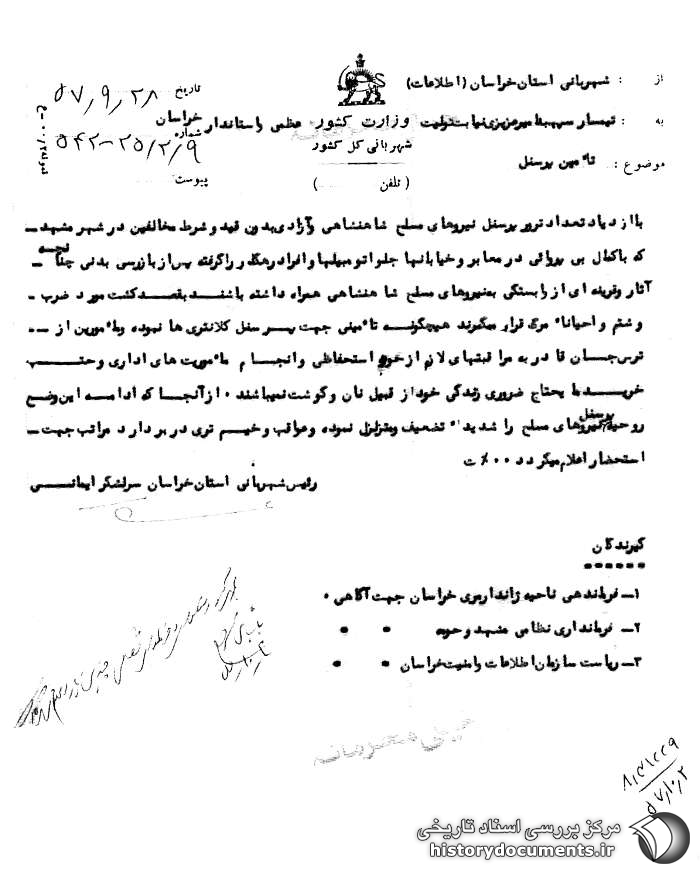 از : شهربانی استان خراسان (اطلاعات)
به : تیمسار سپهبد امیر عزیزی نیابت تولیت عظمی و استاندار خراسان
موضوع : تأمین پرسنل
وزارت کشور
شهربانی کل کشور
(تلفن )
تاریخ ۵۷٫۹٫۲۸
شماره ۵۴۲-۲۵/۲/۹
پیوست
با ازدیاد تعداد ترور پرسنل نیروهای مسلح شاهنشاهی و آزادی بدون قید و شرط مخالفین در شهر مشهد ـ
که باکمال بی پروائی در معابر و خیابانها جلو اتومبیلها و افراد رهگذر را گرفته پس از بازرسی بدنی چنانچه ـ
آثار و قرینه ای از وابستگی به نیروهای مسلح شاهنشاهی همراه داشته باشند بقصد کشت مورد ضرب ـ
و شتم و احیانا" مرگ قرار میگیرند هیچگونه تأمینی جهت پرسنل کلانتری ها نموده و مأمورین از ـ
ترس جان قادر به مراقبتهای لازم از خود استحفاظی و انجام مأموریت های اداری و حتی
خرید مایحتاج ضروری زندگی خود از قبیل نان و گوشت نمیباشند ۰ از آنجا که ادامه این وضع
روحیه پرسنل نیروهای مسلح را شدیدا" تضعیف و متزلزل نموده و عواقب وخیم تری در بر دارد مراتب جهت ـ
استحضار اعلام میگردد ۰۰٪ ت
رئیس شهربانی استان خراسان سرلشکر ایمانی
گیرندگان
۱ـ فرماندهی ناحیه ژاندارمری خراسان جهت آگاهی ۰
۲ـ فرمانداری نظامی مشهد و حومه " "
۳ـ ریاست سازمان اطلاعات و امنیت خراسان " "
۸٫۴۱۲۲۹
۵۷٫۱۰٫۲
مرکز بررسی اسناد تاریخی
historydocuments.ir